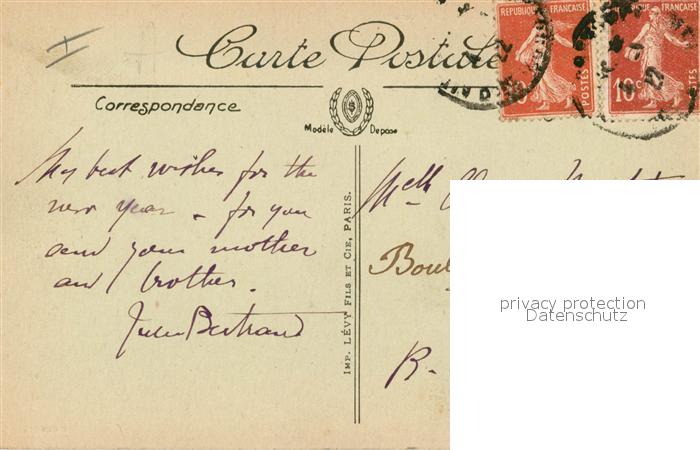 Carte Postale
RÉPUBLIQUE FRANÇAISE
POSTES
FRANÇAISE
10c
POSTES
22
Correspondance
Modèle Deposé
My best wishes for the
new year - for you
and your mother
and brother.
Jules Bertrand
IMP. LÉVY FILS ET CIE, PARIS.
Melle
Boul
R.
privacy protection
Datenschutz